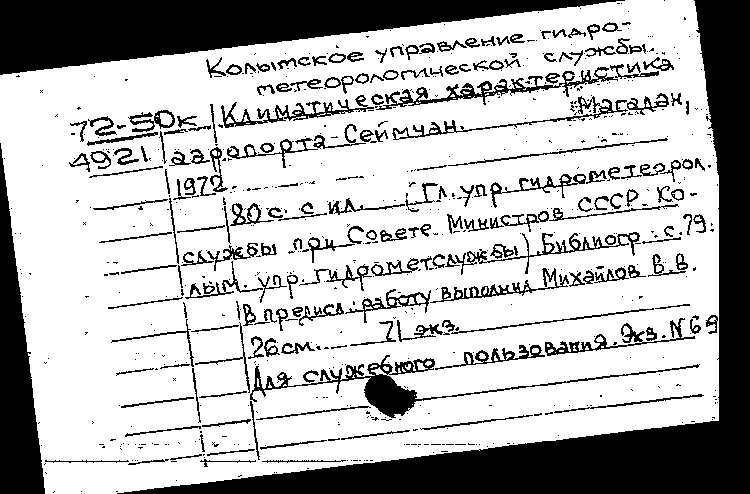 Колымское управление гидро-
метеорологической службы.
72-50к Климатическая характеристика
4921 аэропорта Сеймчан. Магадан,
1972.
80 с. с ил. (Гл. упр. гидрометеорол.
службы при Совете Министров СССР. Ко-
лым. упр. гидрометслужбы). Библиогр.: с. 79.
В предисл.: работу выполнил Михайлов В.В.
26см. 71 экз.
Для служебного пользования. Экз. N 69